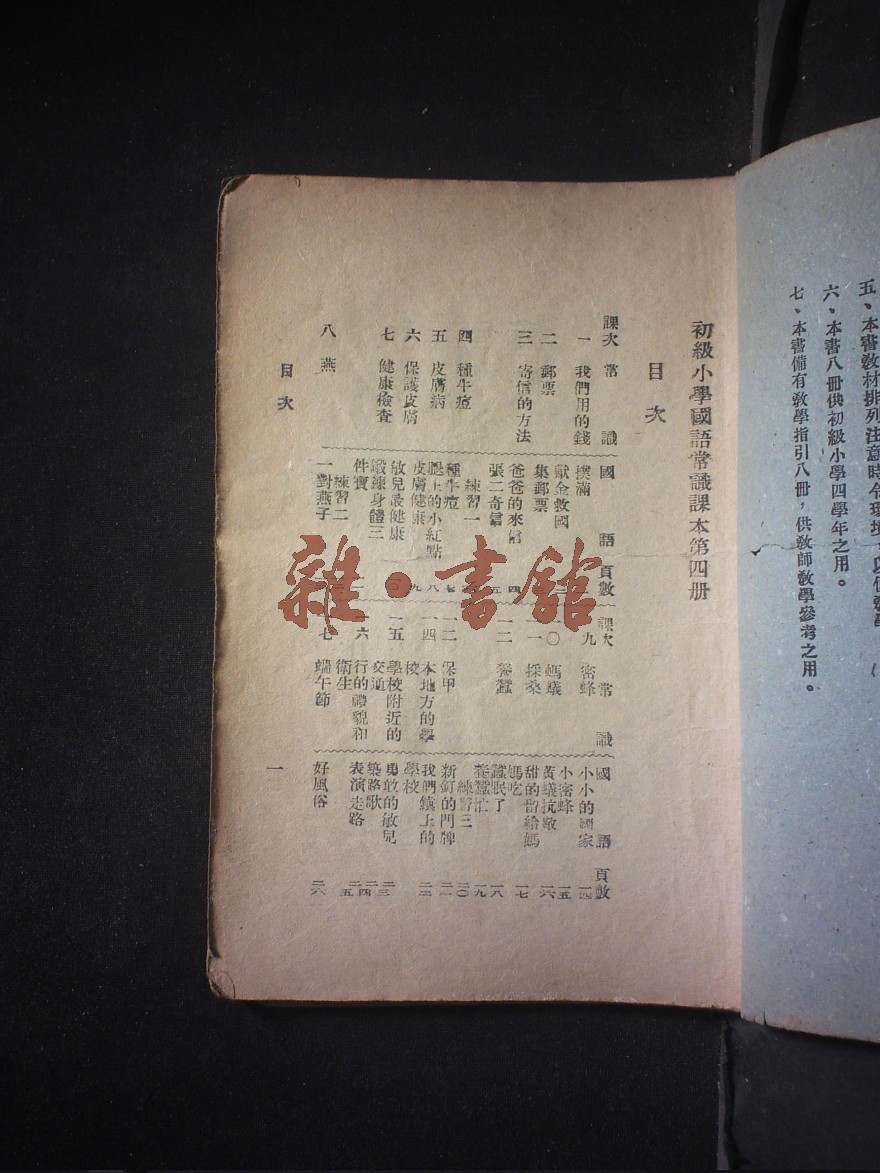 五、本書教材排列注意時令環境
六、本書八冊供初級小學四學年之用。
七、本書備有教學指引八冊,供教師教學參考之用。
初級小學國語常識課本第四册
目次
課次 常識 國語 頁數
一 我們用的錢 撲滿
獻金救國
二 郵票 集郵票
三 寄信的方法 爸爸的來信 四
張二寄信 五
練習一
四 種牛痘 種牛痘 七
五 皮膚病 腿上的小紅點 八
六 保護皮膚 皮膚健康 九
七 健康檢查 敏兒最健康 一〇
鍛鍊身體三
件寶
練習二
八 燕 一對燕子
課次 常識 國語 頁數
九 密蜂 小小的國家 一四
小密蜂 一五
一〇 螞蟻 黃蟻抗敵 一六
一一 採桑 甜的留給媽
媽吃 一七
一二 養蠶 蠶眠了 一八
養蠶忙 一九
練習三 二〇
保甲 新釘的門牌 二一
一四 本地方的學
校 我們鎮上的
學校 二二
一五 學校附近的
交通 勇敢的敏兒 二三
築路歌 二四
一六 行的禮貌和
衛生 表演走路 二五
七 端午節 好風俗 二六
目次
一
雜·書館